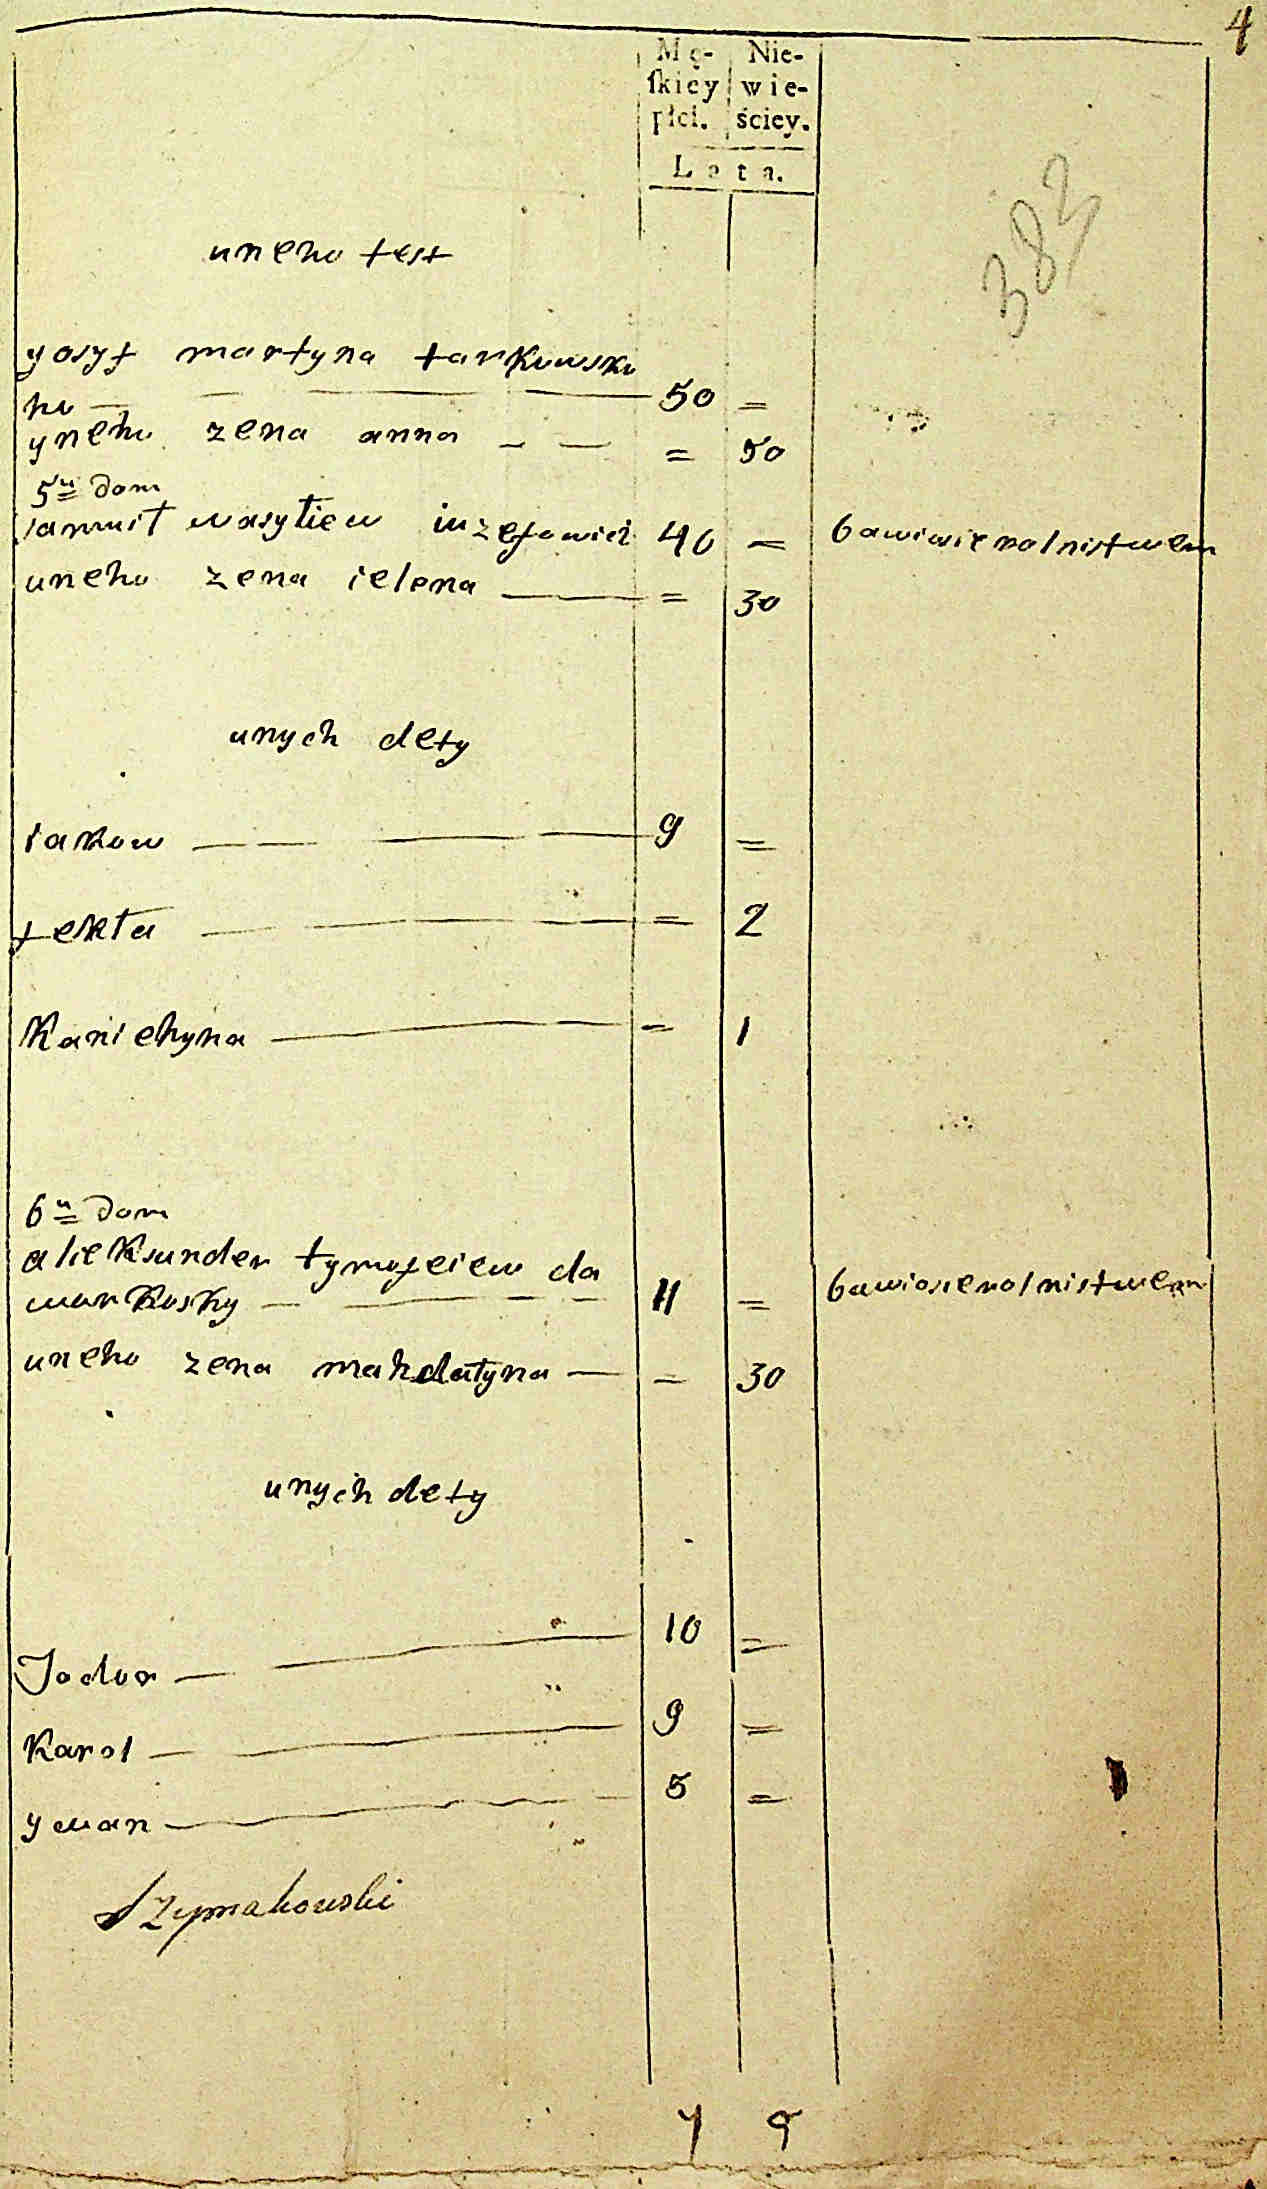 4
Mę- Nie-
ſkiey wie-
płci. ściey.
Lata.
383
uneho test
yosyf martyna tarkowsko
ho 50 =
yneho zena anna = 50
5ԵՍ dom
samuił wasyłiew iuzefowicz 40 = bawiwsie rolnistwem
uneho zena ielena = 30
unych dety
iakow 9 =
fekła = 2
Kaniehyna = 1
6 dom
alieksander tymofeiew da
warkosky 41 = bawiosie rolnistwem
uneho zena mahdałyna = 30
unych dety
Jodor 10 =
Karol 9 =
ywan 5 =
Szymakowski
7 5